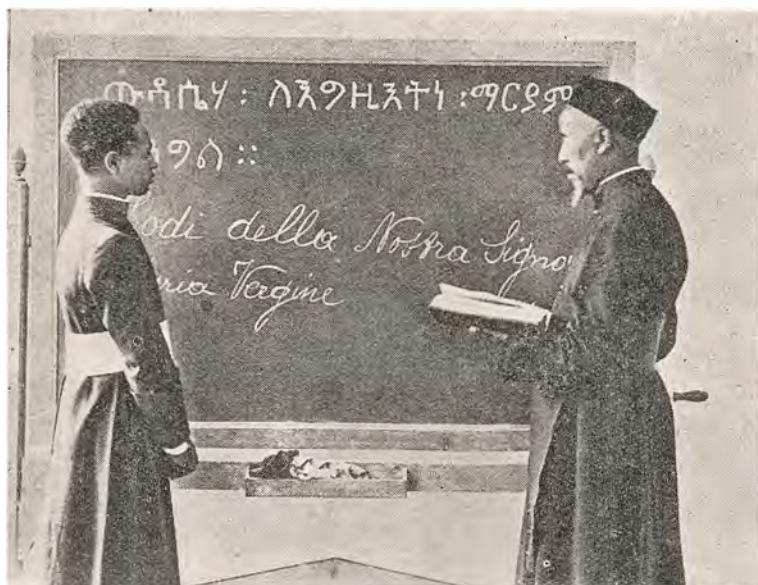 ውዳሴሃ ፡ ለእግዚእትነ ፡ ማርያም
ግል ።
odi della Nostra Signo
ria Vergine